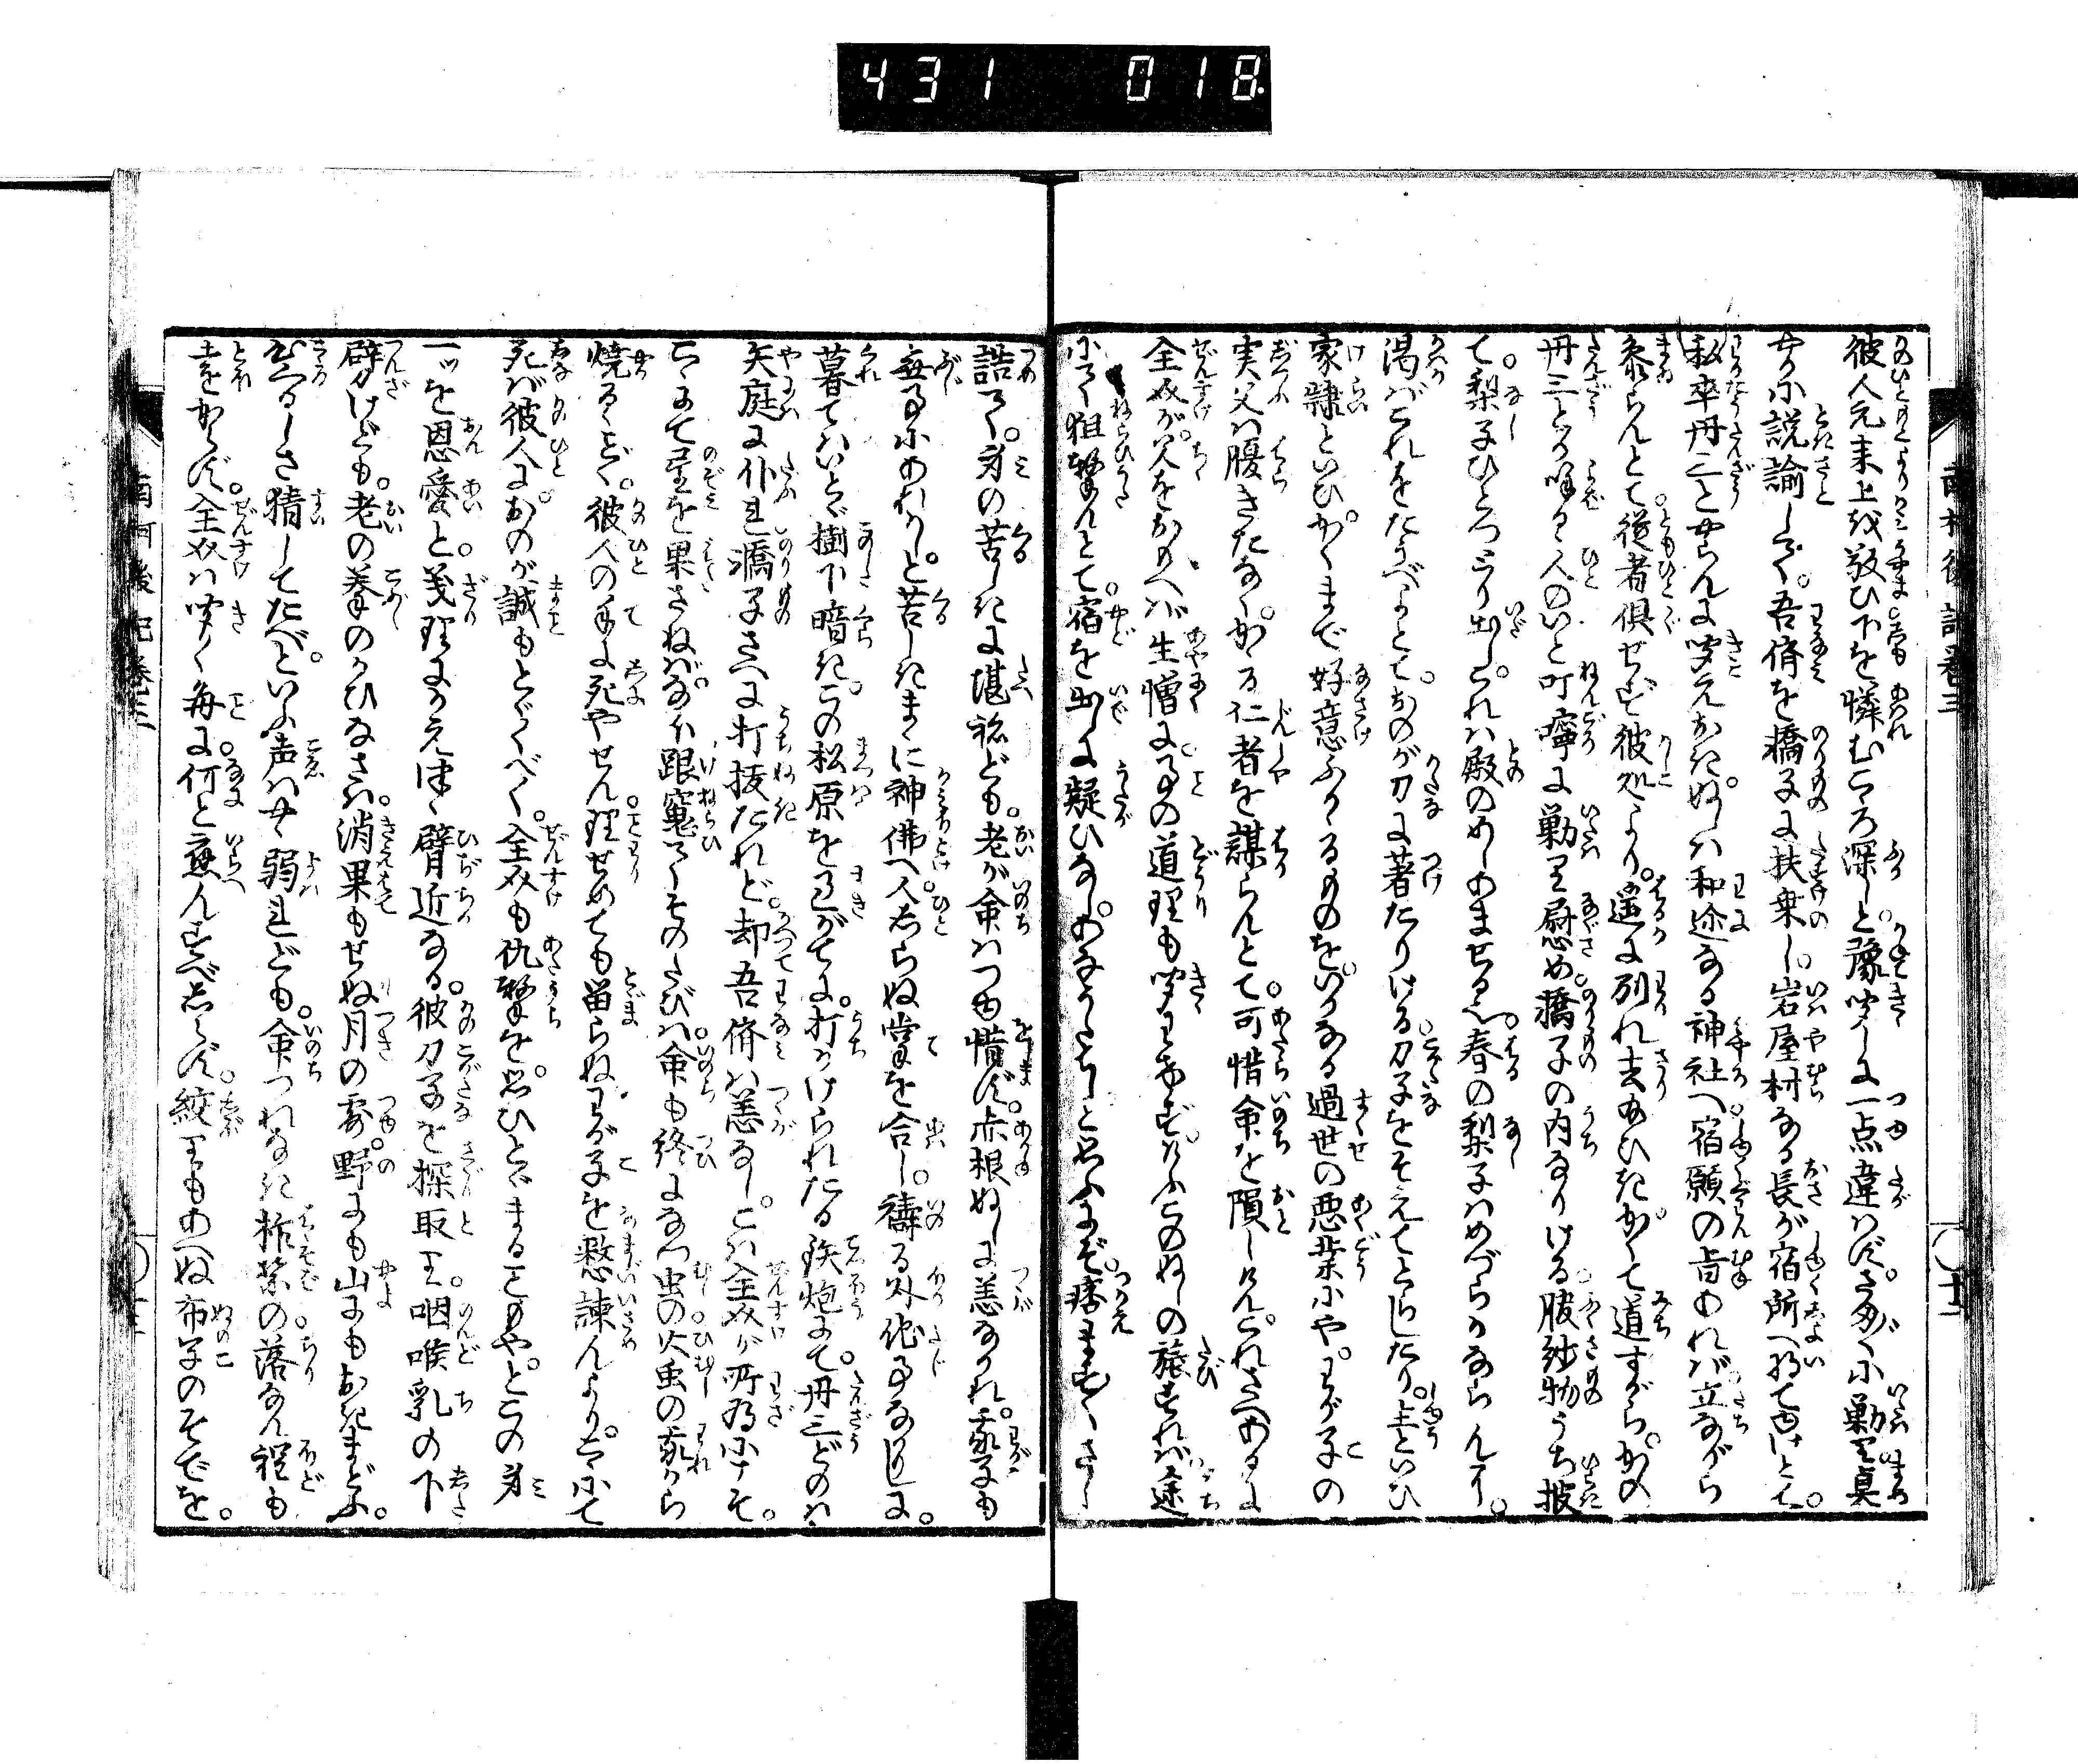 431 018
彼人元来上を敬ひ下を憐むこゝろ深しと豫聞しに一点違はず。さめ〴〵に勦り貞
やかに説諭して。吾儕を轎子に扶乗し。岩屋村なる長が宿所へ将てゆけとて。
私卒丹三とやらんに聞えおき。ぬしは和途なる神社へ宿願の旨あれば立ながら
参らんとて従者倶せず彼処より。遥に別れ去給ひき。かくて道すがら。かの
丹三とか喚るゝ人のいと叮嚀に勦り慰め轎子の内なりける腰纱物うち披
て。梨子ひとつとり出し。これは殿のめしあませる也。春の梨子はめづらかならんに。
渇ばこれをたうべよとて。おのが刀に著たりける刀子をそえてとらしたり。主といひ
家隷といひ。かくまで好意ふかゝるものを。いかなる過世の悪業にや。わが子の
実父は腹きたなく。かゝる仁者を謀らんとて。可惜命を隕しけん。これさへあるに
全介が父をおもへば生憎に。事の道理も聞わきず。けふこのぬしの旅すれば途
にて狙撃んとて。宿を出しに疑ひなし。あなうたてしと思ふにぞ。痞ますます さし
詰て。身の苦しさに堪ねども。老が命はつゆ惜まず。赤根ぬしに恙なかれ。我子も
無事にあれかしと苦しきまゝに神佛へ人しらぬ掌を合し。祷る外他事なかりしに。
暮てはいとゞ樹下暗き。この松原をよぎがてに。打かけられたる鉄炮にて。丹三どのは
矢庭に仆れ轎子さへに打抜たれど。却吾儕は恙なし。こは全介が所為にこそ。
こゝにて望を果さねば。なほ跟窺てそのたびは。命も終に夏虫の火虫の我から
焼るゝごとく。彼人の手に死やせん。理せめても畄らぬわが子を憖諫んより。こゝにて
死ば彼人に。おのが誠もとゞくべく。全介も仇撃を。思ひとゞまることもやと。この身
一ッを恩愛と。義理にかえばや臂近なる。彼刀子を探取り。咽喉乳の下
劈けども。老の拳のかひなさは。消果もせぬ月の露。野にも山にもおきまどふ。
こゝろぐるしさ猜してたべ。といふ声はや弱れども。命つれなき柞葉の落なん程も
遠からず。全介は聞く毎に何と應んすべしらず。絞りもあへぬ布子のそでを。
南柯後記巻三